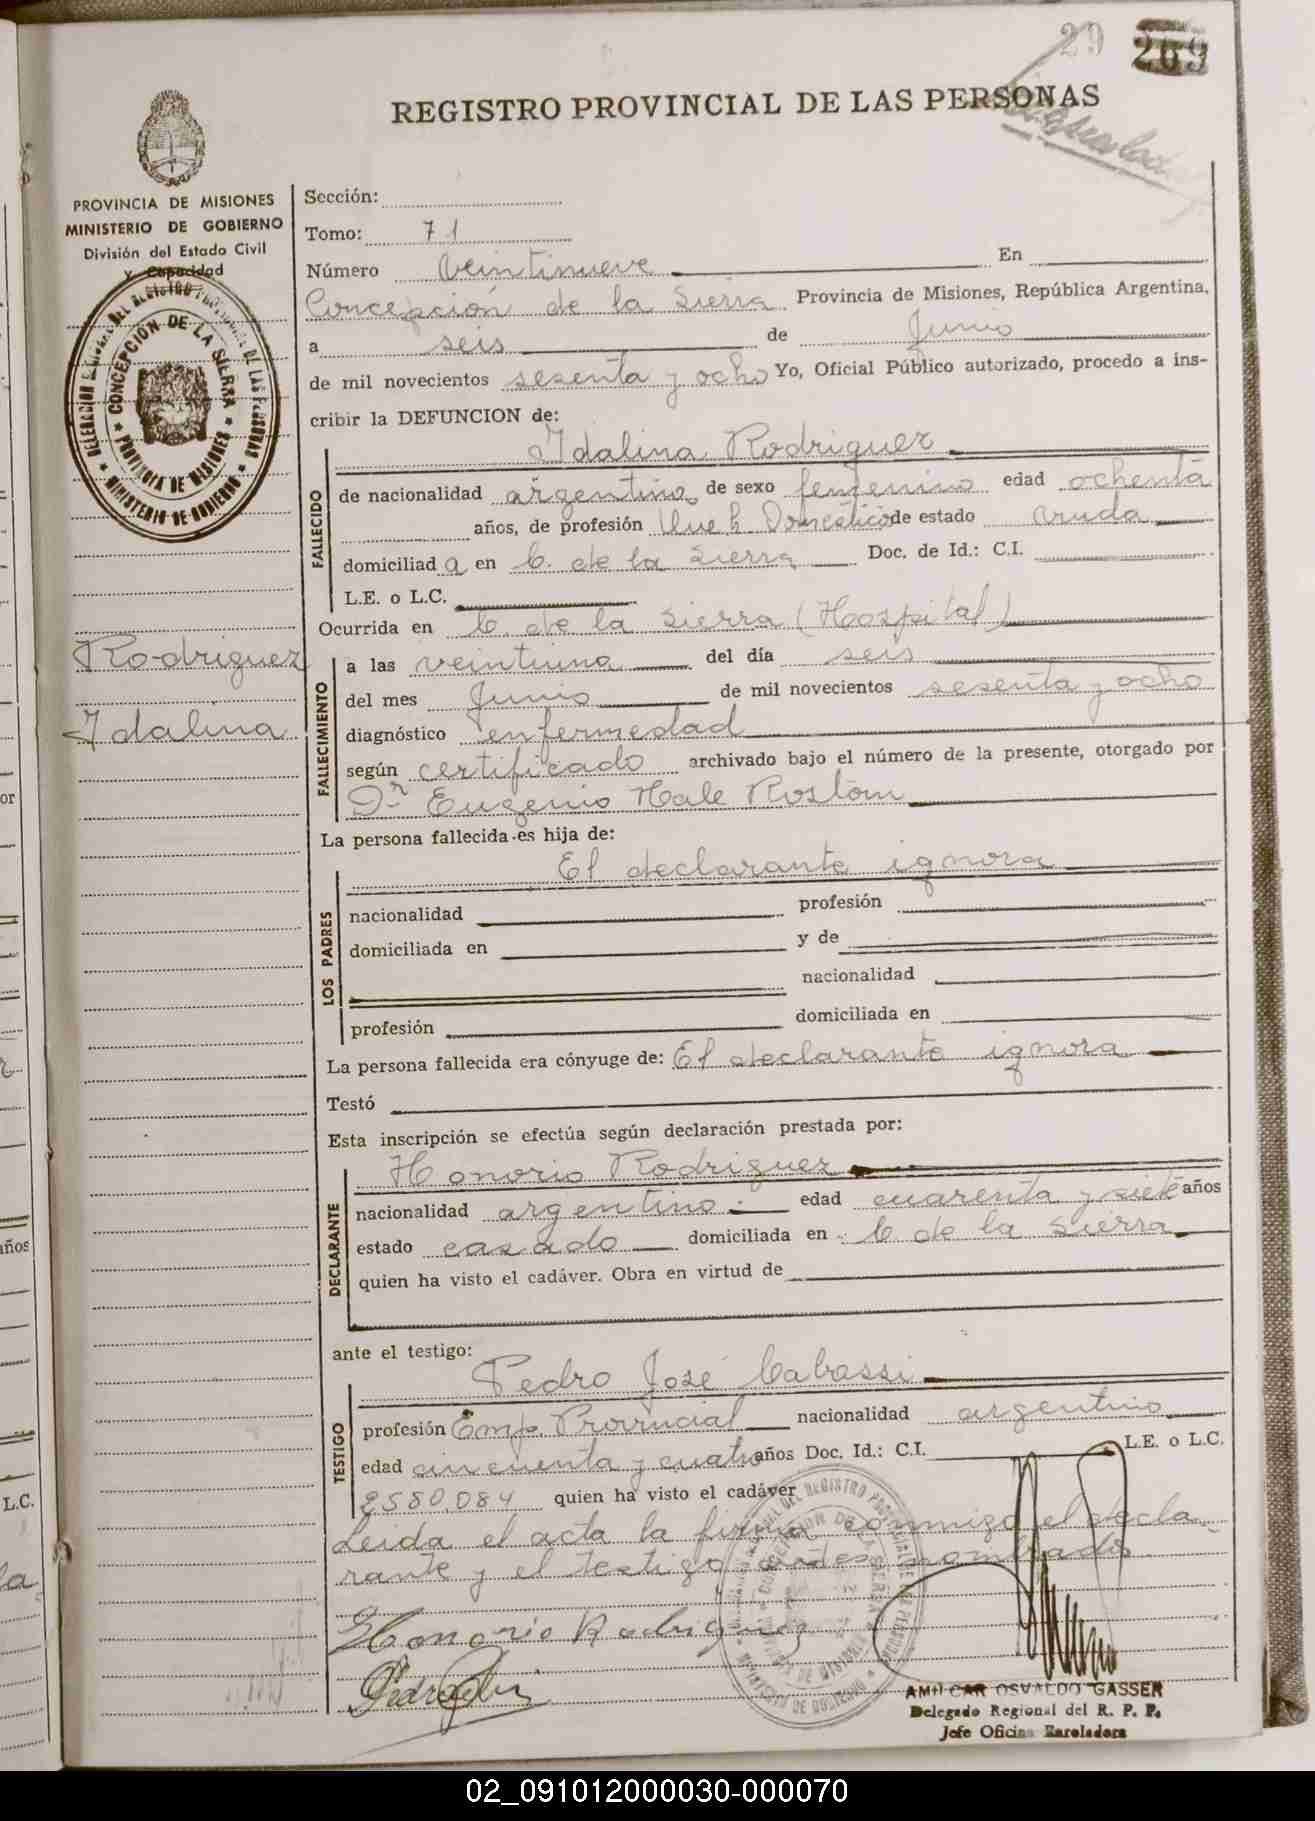 29 269
REGISTRO PROVINCIAL DE LAS PERSONAS
PROVINCIA DE MISIONES
MINISTERIO DE GOBIERNO
División del Estado Civil
y Capacidad
CONCEPCIÓN DE LA SIERRA
PROVINCIA DE MISIONES
MINISTERIO DE GOBIERNO
Rodriguez
Idalina
Sección:
Tomo: 71
Número veintinueve En
Concepción de la Sierra Provincia de Misiones, República Argentina,
a seis de Junio
de mil novecientos sesenta y ocho Yo, Oficial Público autorizado, procedo a ins-
cribir la DEFUNCION de:
FALLECIDO
Idalina Rodriguez
de nacionalidad argentina de sexo femenino edad ochenta
años, de profesión Domestico de estado viuda
domiciliad a en C. de la Sierra Doc. de Id.: C.I.
L.E. o L.C.
Ocurrida en C. de la Sierra (Hospital)
FALLECIMIENTO
a las veintiuna del día seis
del mes Junio de mil novecientos sesenta y ocho
diagnóstico enfermedad
según certificado archivado bajo el número de la presente, otorgado por
Dr Eugenio Hale Rostom
La persona fallecida es hija de:
LOS PADRES
El declarante ignora
nacionalidad profesión
domiciliada en y de
nacionalidad
profesión domiciliada en
La persona fallecida era cónyuge de: El declarante ignora
Testó
Esta inscripción se efectúa según declaración prestada por:
DECLARANTE
Honorio Rodriguez
nacionalidad argentino edad cuarenta y siete años
estado casado domiciliada en C. de la Sierra
quien ha visto el cadáver. Obra en virtud de
ante el testigo:
TESTIGO
Pedro José Cabassi
profesión Emp. Provincial nacionalidad argentino
edad cincuenta y cuatro años Doc. Id.: C.I. L.E. o L.C.
2580.084 quien ha visto el cadáver
Leida el acta la firma conmigo el decla-
rante y el testigo antes nombrados.
Honorio Rodriguez
AMILCAR OSVALDO GASSER
Delegado Regional del R. P. P.
Jefe Oficina Enroladora
02_091012000030-000070